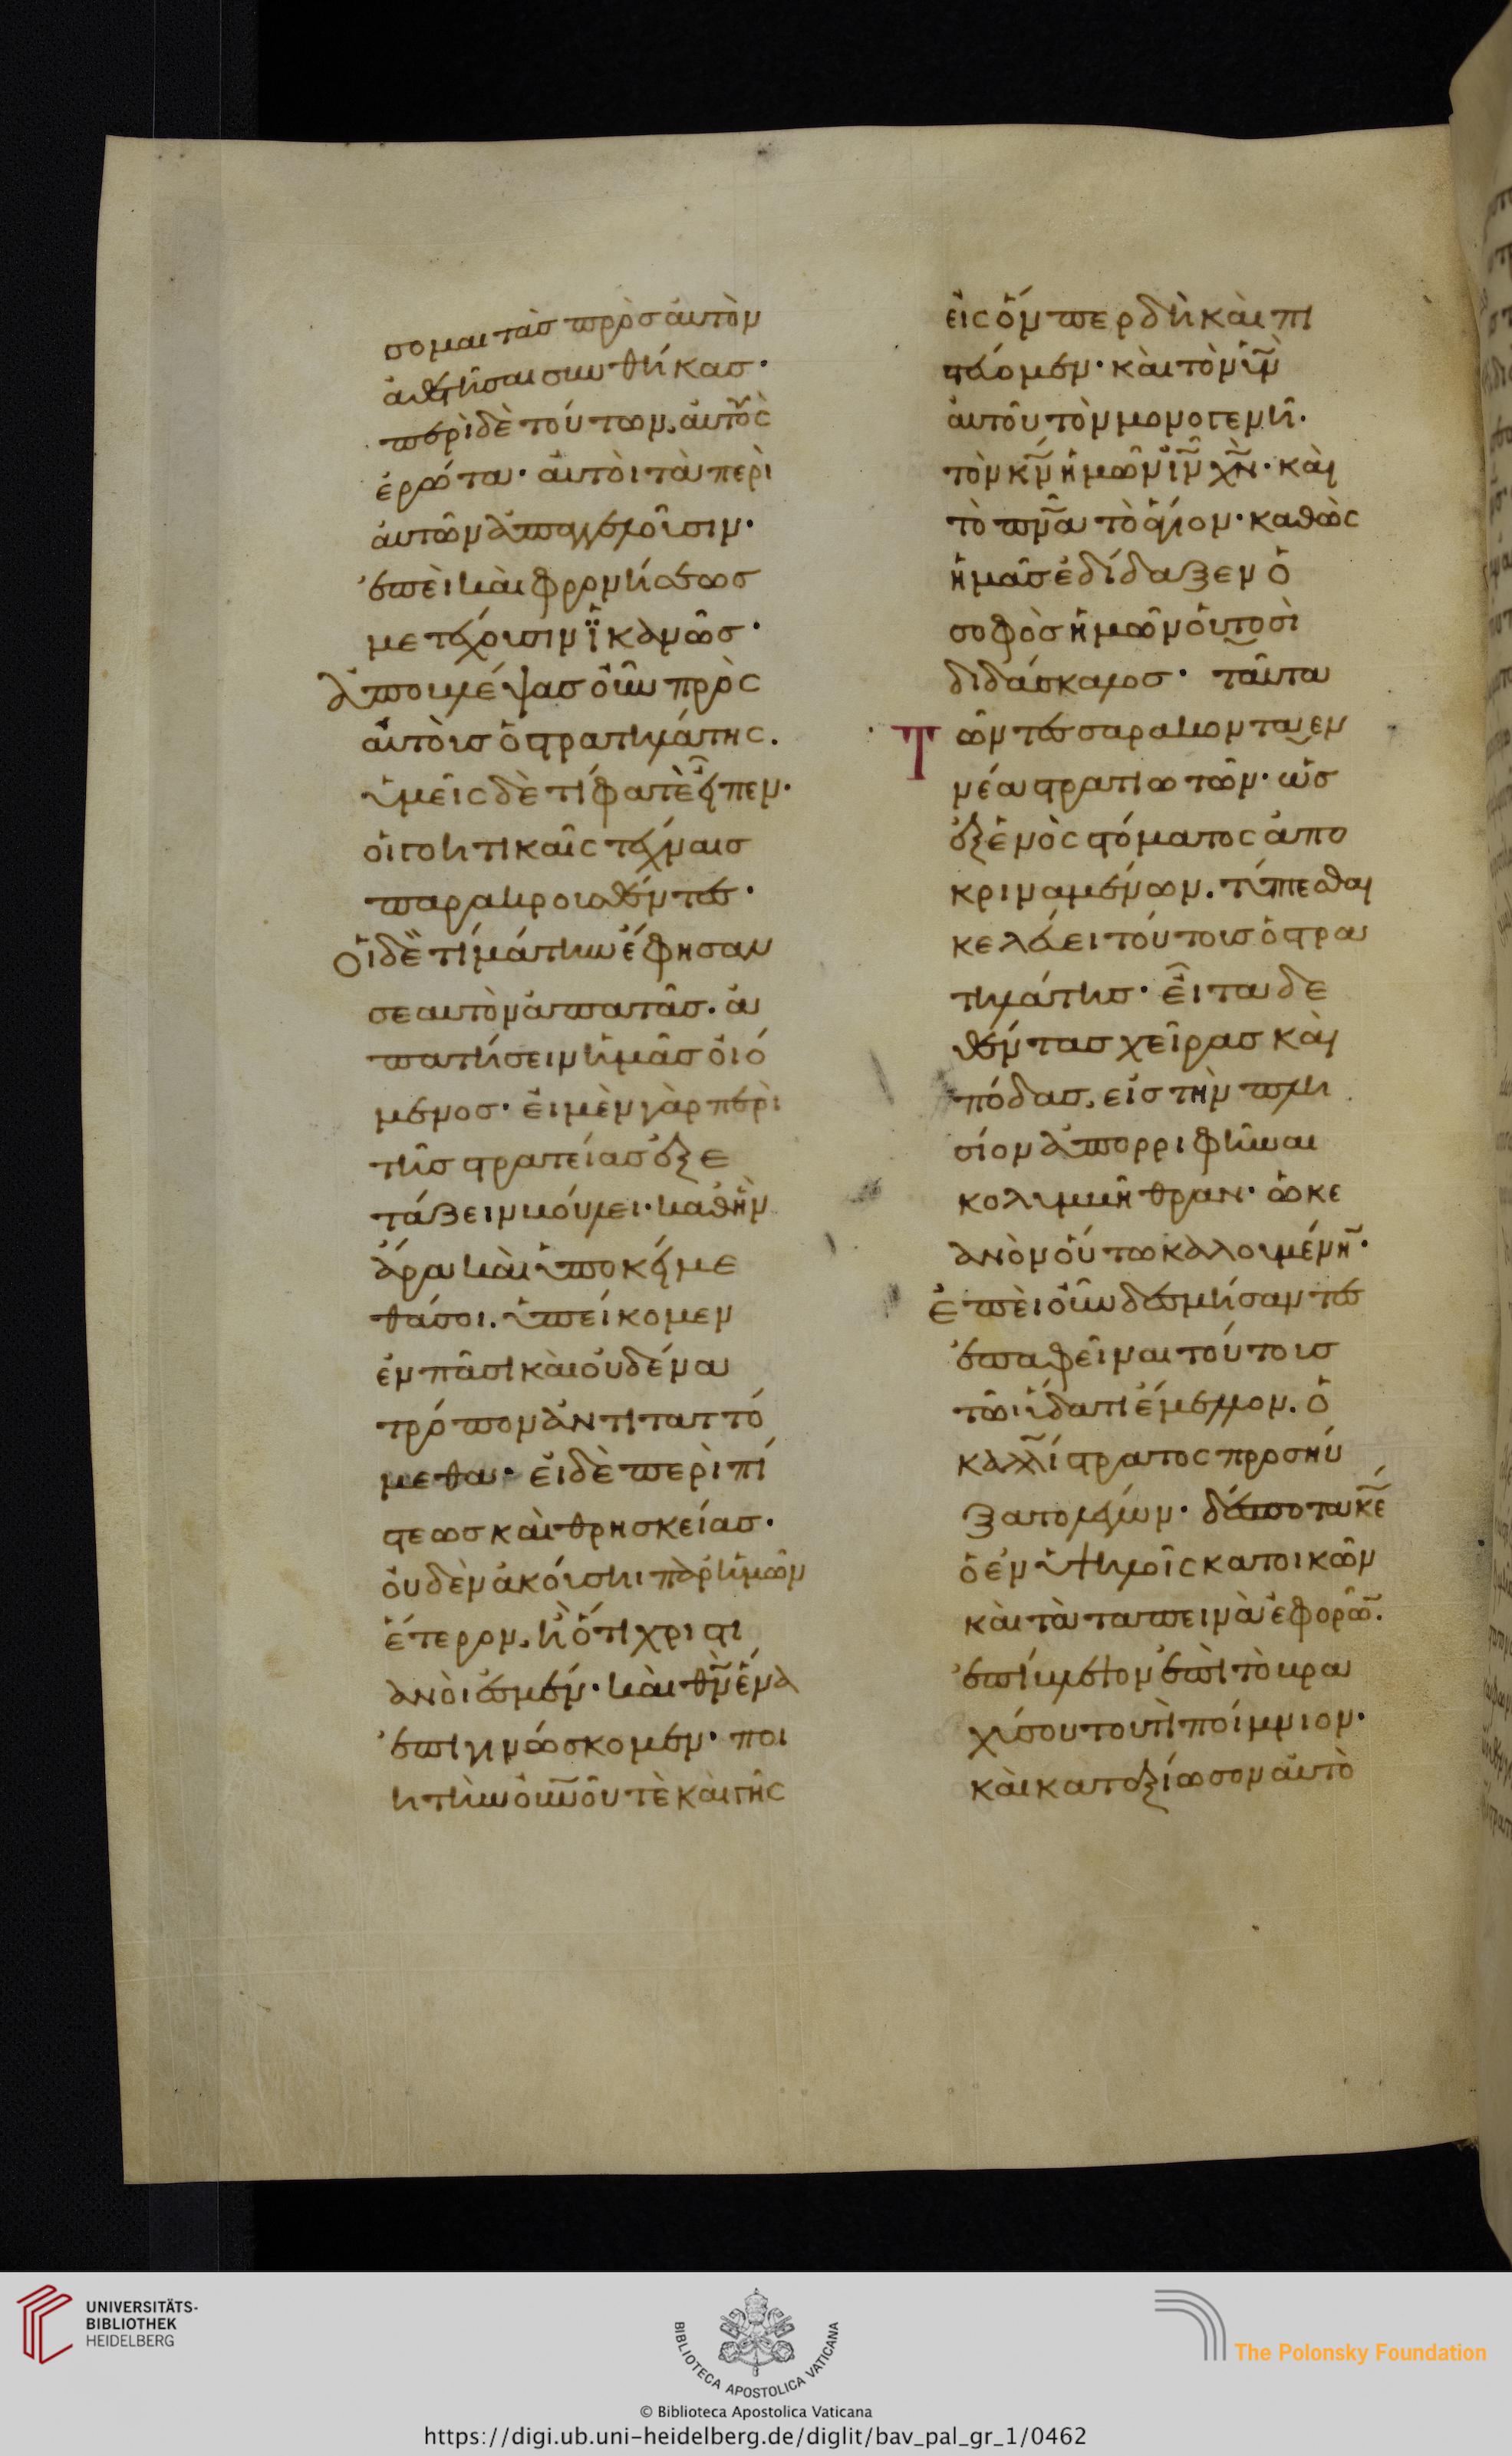 σομαι τὰσ πρὸσ ἀυτὸν
ἀιτῆσαι συνθήκασ·
περὶ δὲ τούτων, ἀυτοῖς
ἐρώτα· ἀυτὸι τὰ περὶ
ἁυτῶν ἀπαγγελοῦσιν·
ἐπεὶ καὶ φρονήσεωσ
μετέχουσιν ἱκανῶσ·
ἀποβλέψασ οὖν πρὸς
ἀυτὸυσ ὁ στρατηλάτης.
ὑμεῖς δὲ τί φατὲ εἶπεν·
οἱ γοητικαῖς τέχναισ
παρακρουσθέντεσ·
Οἱ δὲ τί μάτην ἔφησαν
σεαυτὸν ἀπατᾶσ. ἀ
πατήσειν ἡμᾶσ οἰό
μενοσ· ἐι μὲν γὰρ περὶ
τῆσ στρατείασ ἐξε
τάζειν βούλει· καθ ἣν
ἄρα καὶ ὑποκείμε
θά σοι. ὑπείκομεν
ἐν πᾶσι καὶ ὀυδένα
τρόπον ἀντιταττό
μεθα· ἐι δὲ περὶ πί
στεωσ καὶ θρησκείασ·
ὀυδὲν ἀκούσηι παρ ἡμῶν
ἕτερον, ἢ ὅτι χριστι
ανοί ἐσμέν· καὶ θν̄ ἕνα
ἐπιγινώσκομεν· ποι
ητὴν οὐνοῦ τὲ καὶ γῆς
εἰς ὅν περ δὴ καὶ πι
στεύομεν· καὶ τὸν ὑν̄
ἀυτοῦ τὸν μονογενῆ·
τὸν κν̄ ἡμῶν ιν̄ χν̄· καὶ
τὸ πνᾱ τὸ ἅγιον· καθὼς
ἡμᾶσ ἐδίδαξεν ὁ
σοφὸσ ἡμῶν οὑτοσὶ
διδάσκαλοσ· ταῦτα
Τῶν τεσσαρακονταεν
νέα στρατιωτῶν· ὡσ
ἐξ ἑνὸς στόματος ἀπο
κριναμένων. τύπτεσθαι
κελεύει τούτουσ ὁ στρα
τηλάτησ· εἶτα δε
θέντασ χεῖρασ καὶ
πόδασ, εἰσ τὴν πλη
σίον ἀπορριφῆναι
κολυμβήθραν· ὠκε
ανὸν οὕτω καλουμένην·
Ἐπεὶ οὖν δεσμήσαντεσ
ἐπαφεῖναι τούτουσ
τῶι ὕδατι ἔμελλον. ὁ
καλλίστρατος προσηύ
ξατο λέγων· δέσποτα κε̄
ὁ ἐν ὑψηλοῖς κατοικῶν
καὶ τὰ ταπεινὰ ἐφορῶν.
ἐπίβλεψον ἐπὶ τὸ βρα
χύ σου τουτὶ ποίμνιον·
καὶ καταξίωσον ἀυτὸ
UNIVERSITÄTS-
BIBLIOTHEK
HEIDELBERG
BIBLIOTECA APOSTOLICA VATICANA
The Polonsky Foundation
© Biblioteca Apostolica Vaticana
https://digi.ub.uni-heidelberg.de/diglit/bav_pal_gr_1/0462